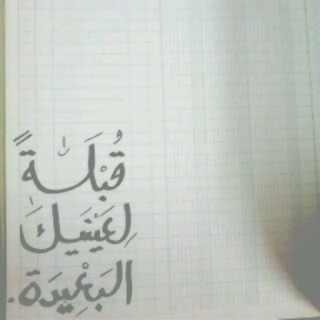 قُبْلَةً
لِعَيْنَيكَ
البَعْيِدَة.